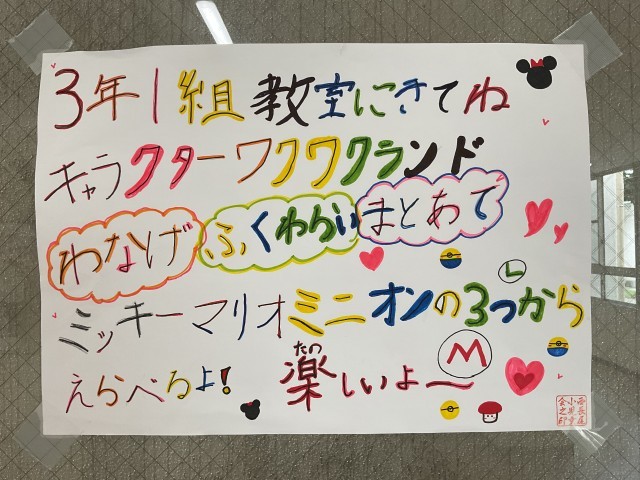 3年1組教室にきてね
キャラクターワクワクランド
わなげ ふくわらい まとあて
ミッキーマリオミニオンの3つから
L
えらべるよ! 楽しいよ〜
たの
M